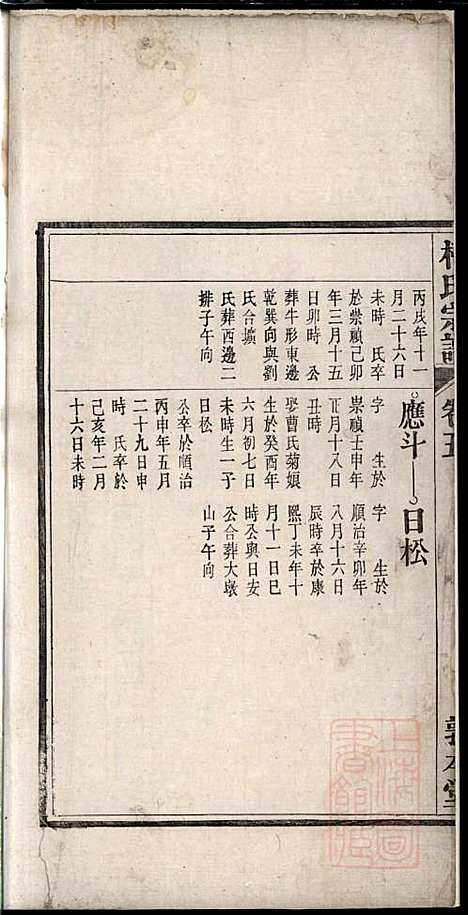 氏宗譜
卷五
敦本堂
丙戌年十一
月二十六日
未時 氏卒
於崇禎己卯
年三月十五
日卯時 公
葬牛形東邊
乾巽向與劉
氏合壙
氏葬西邊二
排子午向
應斗
字 生於
崇禎壬申年
正月十八日
丑時
娶曹氏菊娘
生於癸酉年
六月初七日
未時生一子
日松
公卒於順治
丙申年五月
二十九日申
時 氏卒於
己亥年二月
十六日未時
日松
字 生於
順治辛卯年
八月十六日
辰時卒於康
熙丁未年十
月十一日巳
時公與日安
公合葬大墩
山子午向
上海圖書館藏